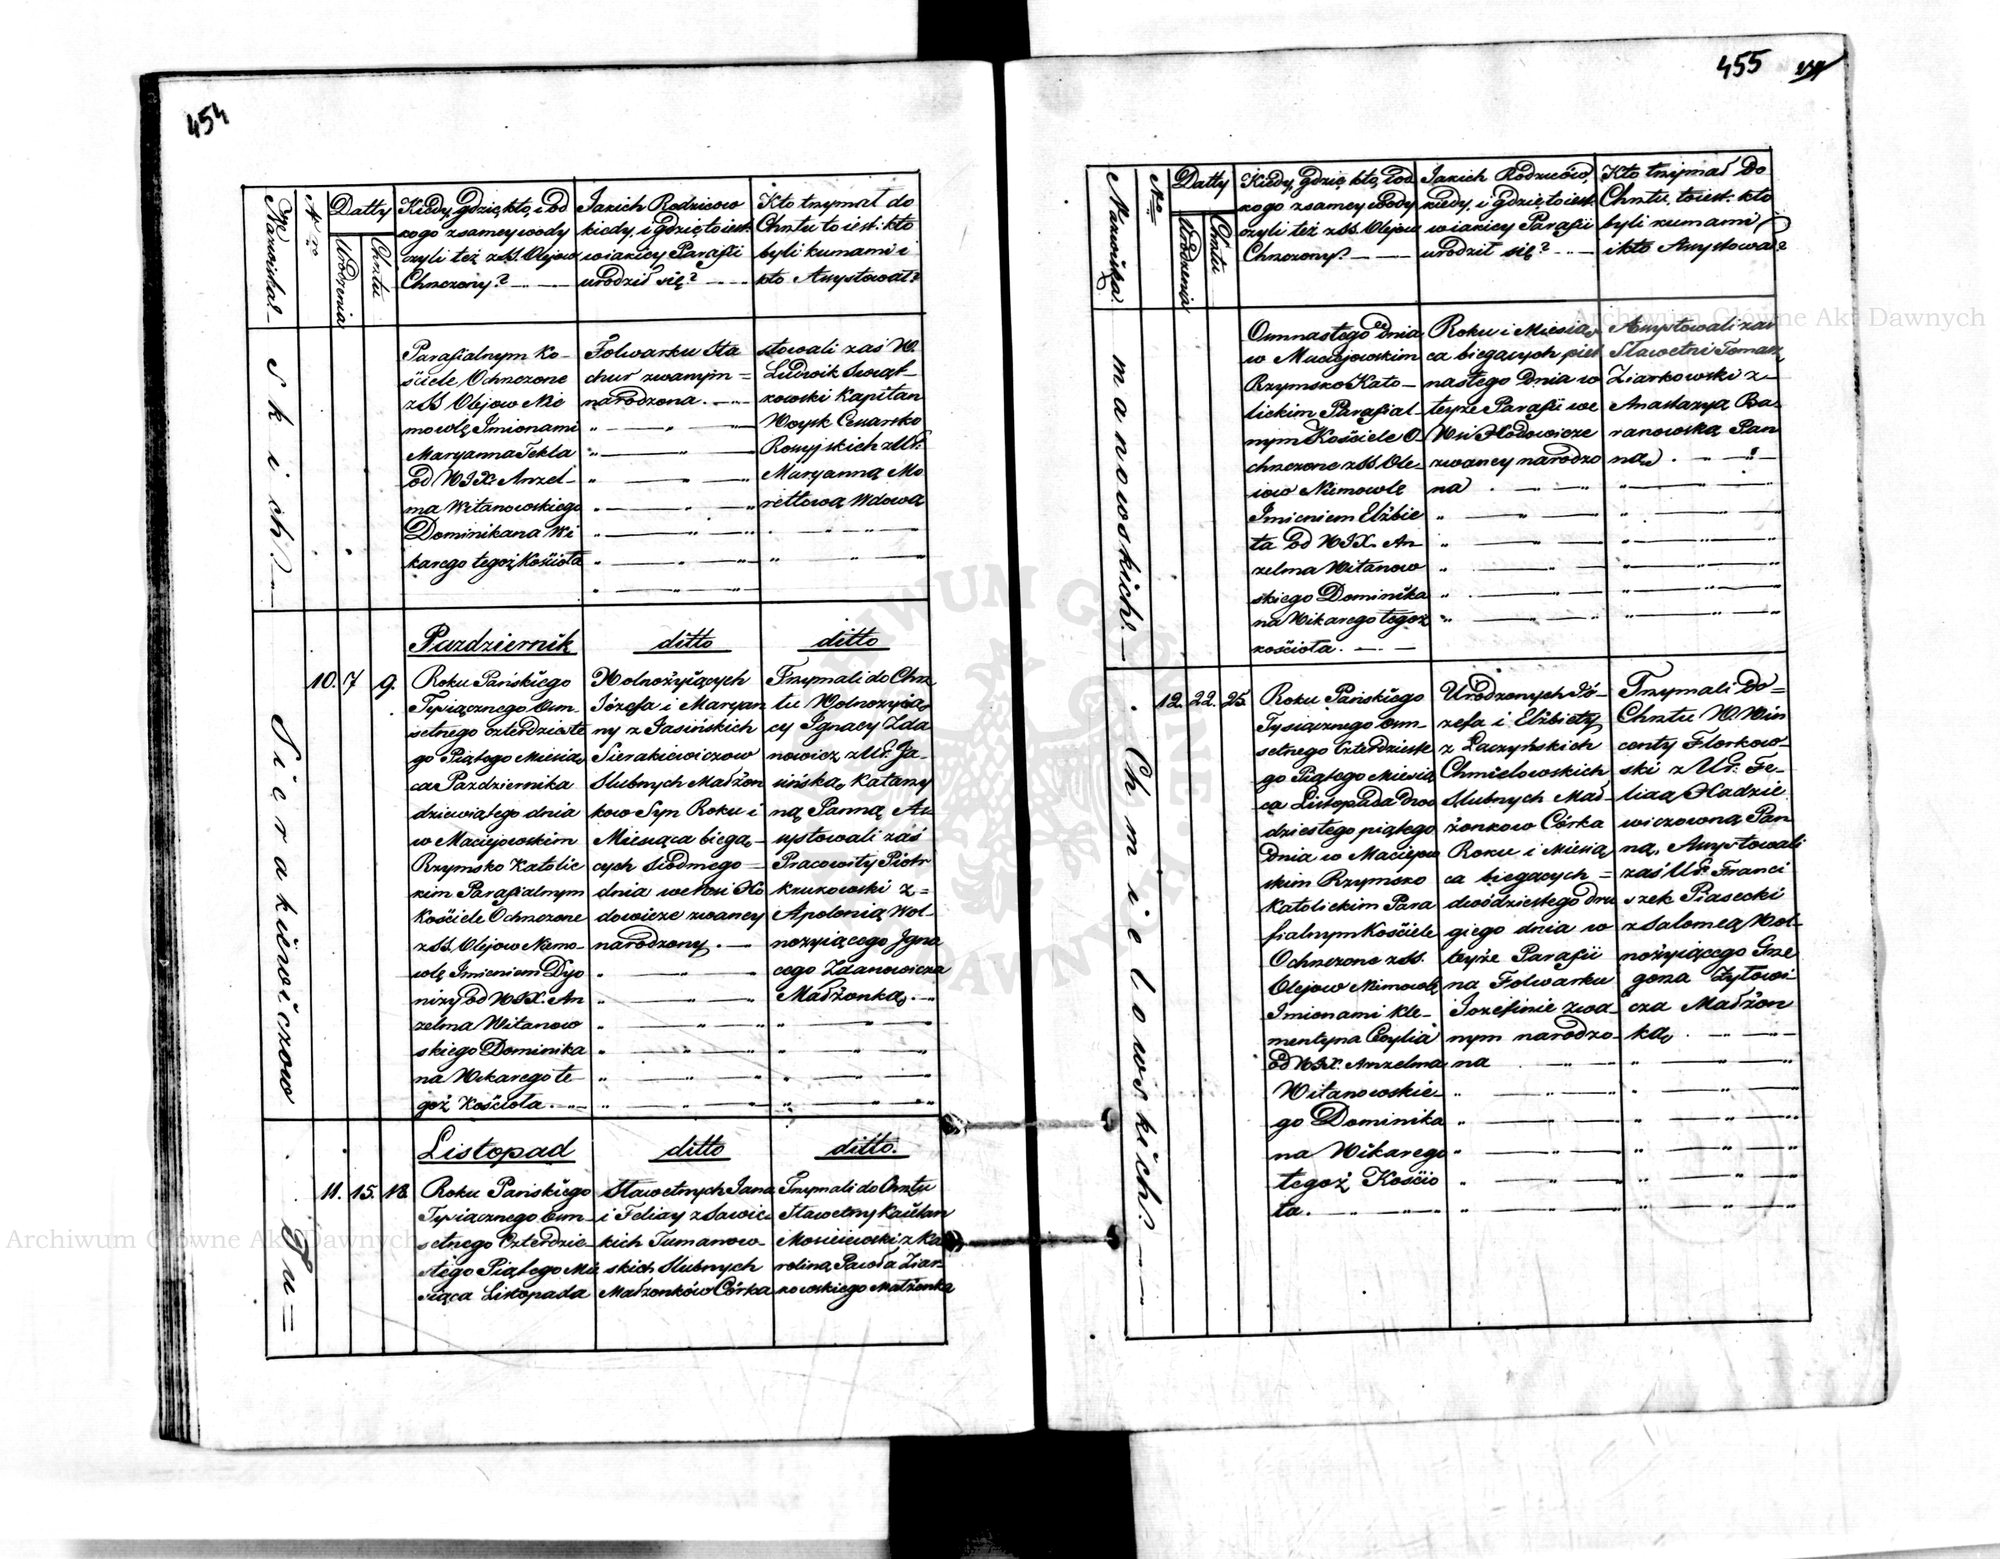 454
Nazwiska!
N-ro
Datty
Urodzenia
Chrztu
Kiedy, gdzie, kto, i od
kogo z samey wody
czyli też z SS. Olejow
Chrzczony?
Jakich Rodzicow
kiedy, i gdzie, to iest.
w iakiey Parafii
urodził się?
Kto trzymał do
Chrztu to iest: kto
byli kumami i
kto Assystował?
skich!
Parafialnym Ko-
ściele Ochrzczone
z SS Olejow Nie
mowlę Imionami
Maryanna Tekla
od WJX. Anzel-
ma Witanowskiego
Dominikana Wi
karego tegoż Kościoła
Folwarku Sta
chur zwanym =
narodzona.
stowali zaś W.
Ludwik Swiąt-
kowski Kapitan
Woysk Cesarsko
Rossyjskich z Ur.
Maryanną Mo
rettową Wdową
Sierakiewiczow
10. 7 9.
Pazdziernik
Roku Pańskiego
Tysiącznego Ośm-
setnego czterdzieste
go Piątego Miesią
ca Pazdziernika
dziewiątego dnia
w Maciejowskim
Rzymsko Katolic
kim Parafialnym
Kościele Ochrzczone
z SS. Olejow Niemo-
wlę Imieniem Dyo
nizy od WJX. An
zelma Witanow
skiego Dominika
na Wikarego te-
goż Kościoła.
ditto
Wolnożyiących
Józefa i Maryan
ny z Jasińskich
Sierakiewiczow
Slubnych Małżon
kow Syn Roku i
Miesiąca biega-
cych siodmego =
dnia we Wsi Ho
dowicze zwaney
narodzony.
ditto
Trzymali do Chrz
tu Wolnożyią
cy Ignacy Zda
nowicz z Ur. Ja-
sińską Katarzy
ną Panną As
systowali zaś
Pracowity Piotr
Krukowski z =
Apolonią Wol-
nożyiącego Igna
cego Zdanowicza
Małżonką.
Tu=
11. 15. 18.
Listopad
Roku Pańskiego
Tysiącznego Ośm-
setnego Czterdzie
stego Piątego Mie
siąca Listopada
ditto
Sławetnych Jana
i Felixy z Sawic-
kich Tumanow-
skich Slubnych
Małżonków Córka
ditto.
Trzymali do Chrztu
Sławetny Kajetan
Mosiejewski z Ka
roliną Pawła Ziar-
kowskiego Małżonką
455
Nazwiska.
Nro
Datty
Urodzenia
Chrztu
Kiedy, gdzie kto, i od
kogo z samey wody
czyli też z SS. Olejow
Chrzczony?
Jakich Rodziców,
kiedy, i gdzie, to iest.
w iakiey Parafii
urodził się?
Kto trzymał Do
Chrztu, to iest. kto
byli kumami,
i kto Assystował?
manowskich!
Ośmnastego Dnia
w Maciejowskim
Rzymsko Kato-
lickim Parafial-
nym Kościele O-
chrzczone z SS Ole-
iow Niemowlę
Imieniem Elżbie
ta od WJX. An-
zelma Witanow
skiego Dominika
na Wikarego tegoż
Kościoła.
Roku i Miesią
ca biegących pięt
nastego Dnia w
teyże Parafii we
Wsi Hodowicze
zwaney narodzo
na
Assystowali zaś
Sławetni Tomasz
Ziarkowski z
Anastazyą Ba-
ranowską Pan
ną.
Chmielowskich!
12. 22. 25.
Roku Pańskiego
Tysiącznego Ośm-
setnego Czterdzieste
go Piątego Miesią
ca Listopada Dwu
dziestego piątego
Dnia w Maciejow
skim Rzymsko
Katolickim Para
fialnym Kościele
Ochrzczone z SS.
Olejow Niemowlę
Imionami Kle-
mentyna Cecylia
od WJX. Anzelma
Witanowskie-
go Dominika
na Wikarego
tegoż Kościo
ła.
Urodzonych Jó-
zefa i Elżbiety
z Łaczyńskich
Chmielowskich
Slubnych Mał-
żonkow Córka
Roku i Miesią
ca biegących =
dwódziestego dru
giego dnia w
teyże Parafii
na Folwarku
Jozefinie zwa-
nym narodzo-
na
Trzymali Do=
Chrztu W. Win
centy Florkow-
ski z Ur. Fe-
licią Hadzie
wiczowną Pan
ną, Assystowali
zaś Ur. Franci
szek Piasecki
z Salomeą Wol-
nożyiącego Grze
gorza Żytowi-
cza Małżon
ką.
Archiwum Główne Akt Dawnych
Archiwum Główne Akt Dawnych
ARCHIWUM GŁÓWNE AKT DAWNYCH